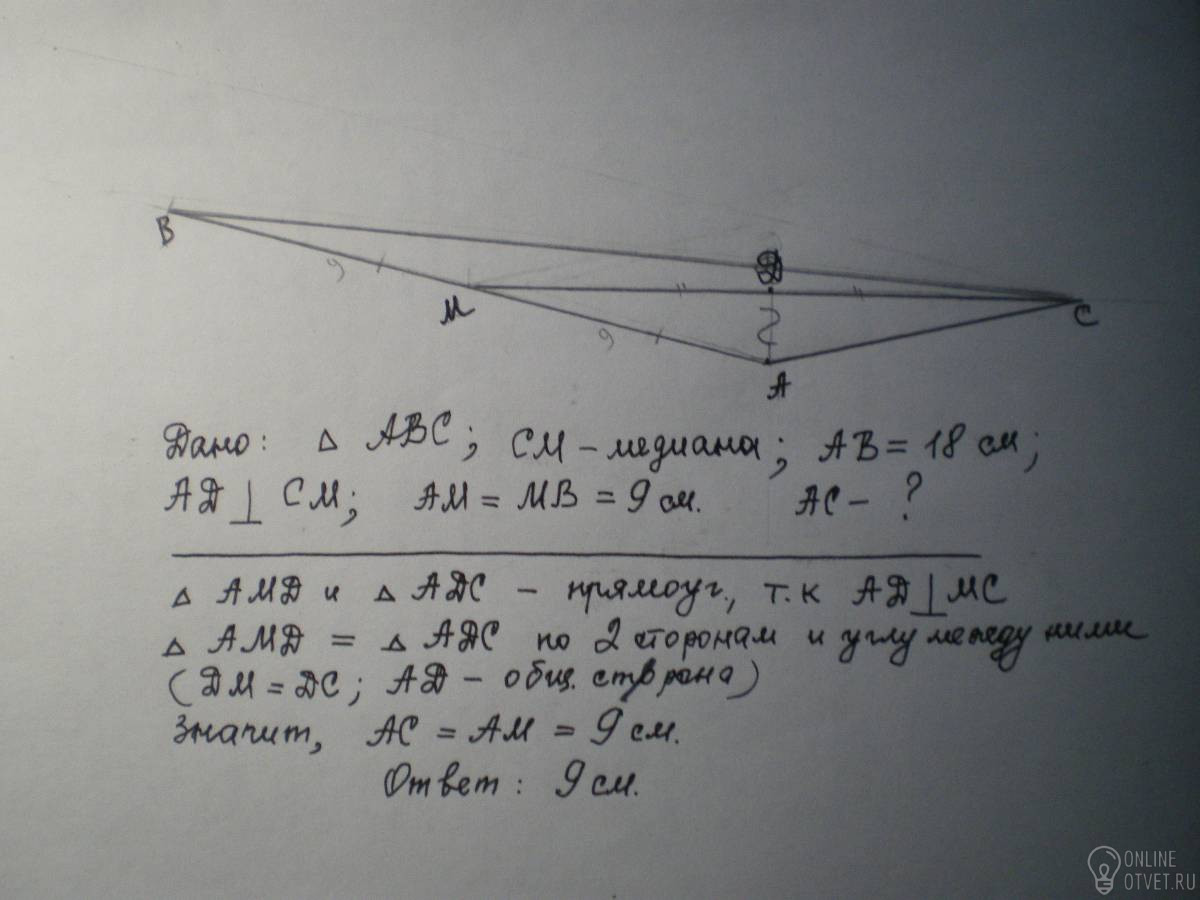 B
9
M
9
A
C
Дано: △ ABC; CM – медиана; AB = 18 см;
AD ⊥ CM; AM = MB = 9 см. AC – ?
△ AMD и △ ADC – прямоуг., т.к AD ⊥ MC
△ AMD = △ ADC по 2 сторонам и углу между ними
(DM = DC; AD – общ. сторона)
Значит, AC = AM = 9 см.
Ответ: 9 см.
ONLINE
OTVET.RU